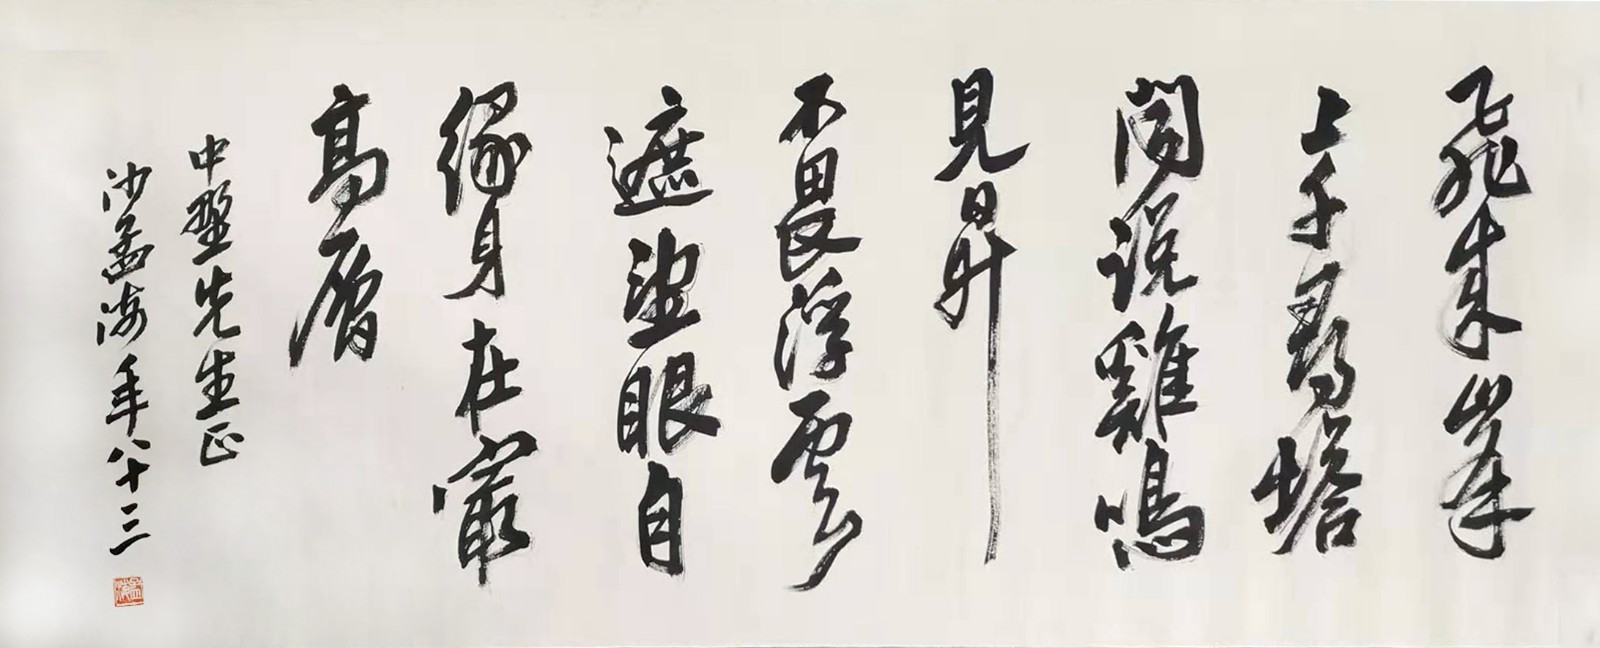 飛来峯
上千尋塔
聞説雞鳴
見日昇
不畏浮雲
遮望眼自
緣身在最
高層
中野先生正
沙孟海年八十三